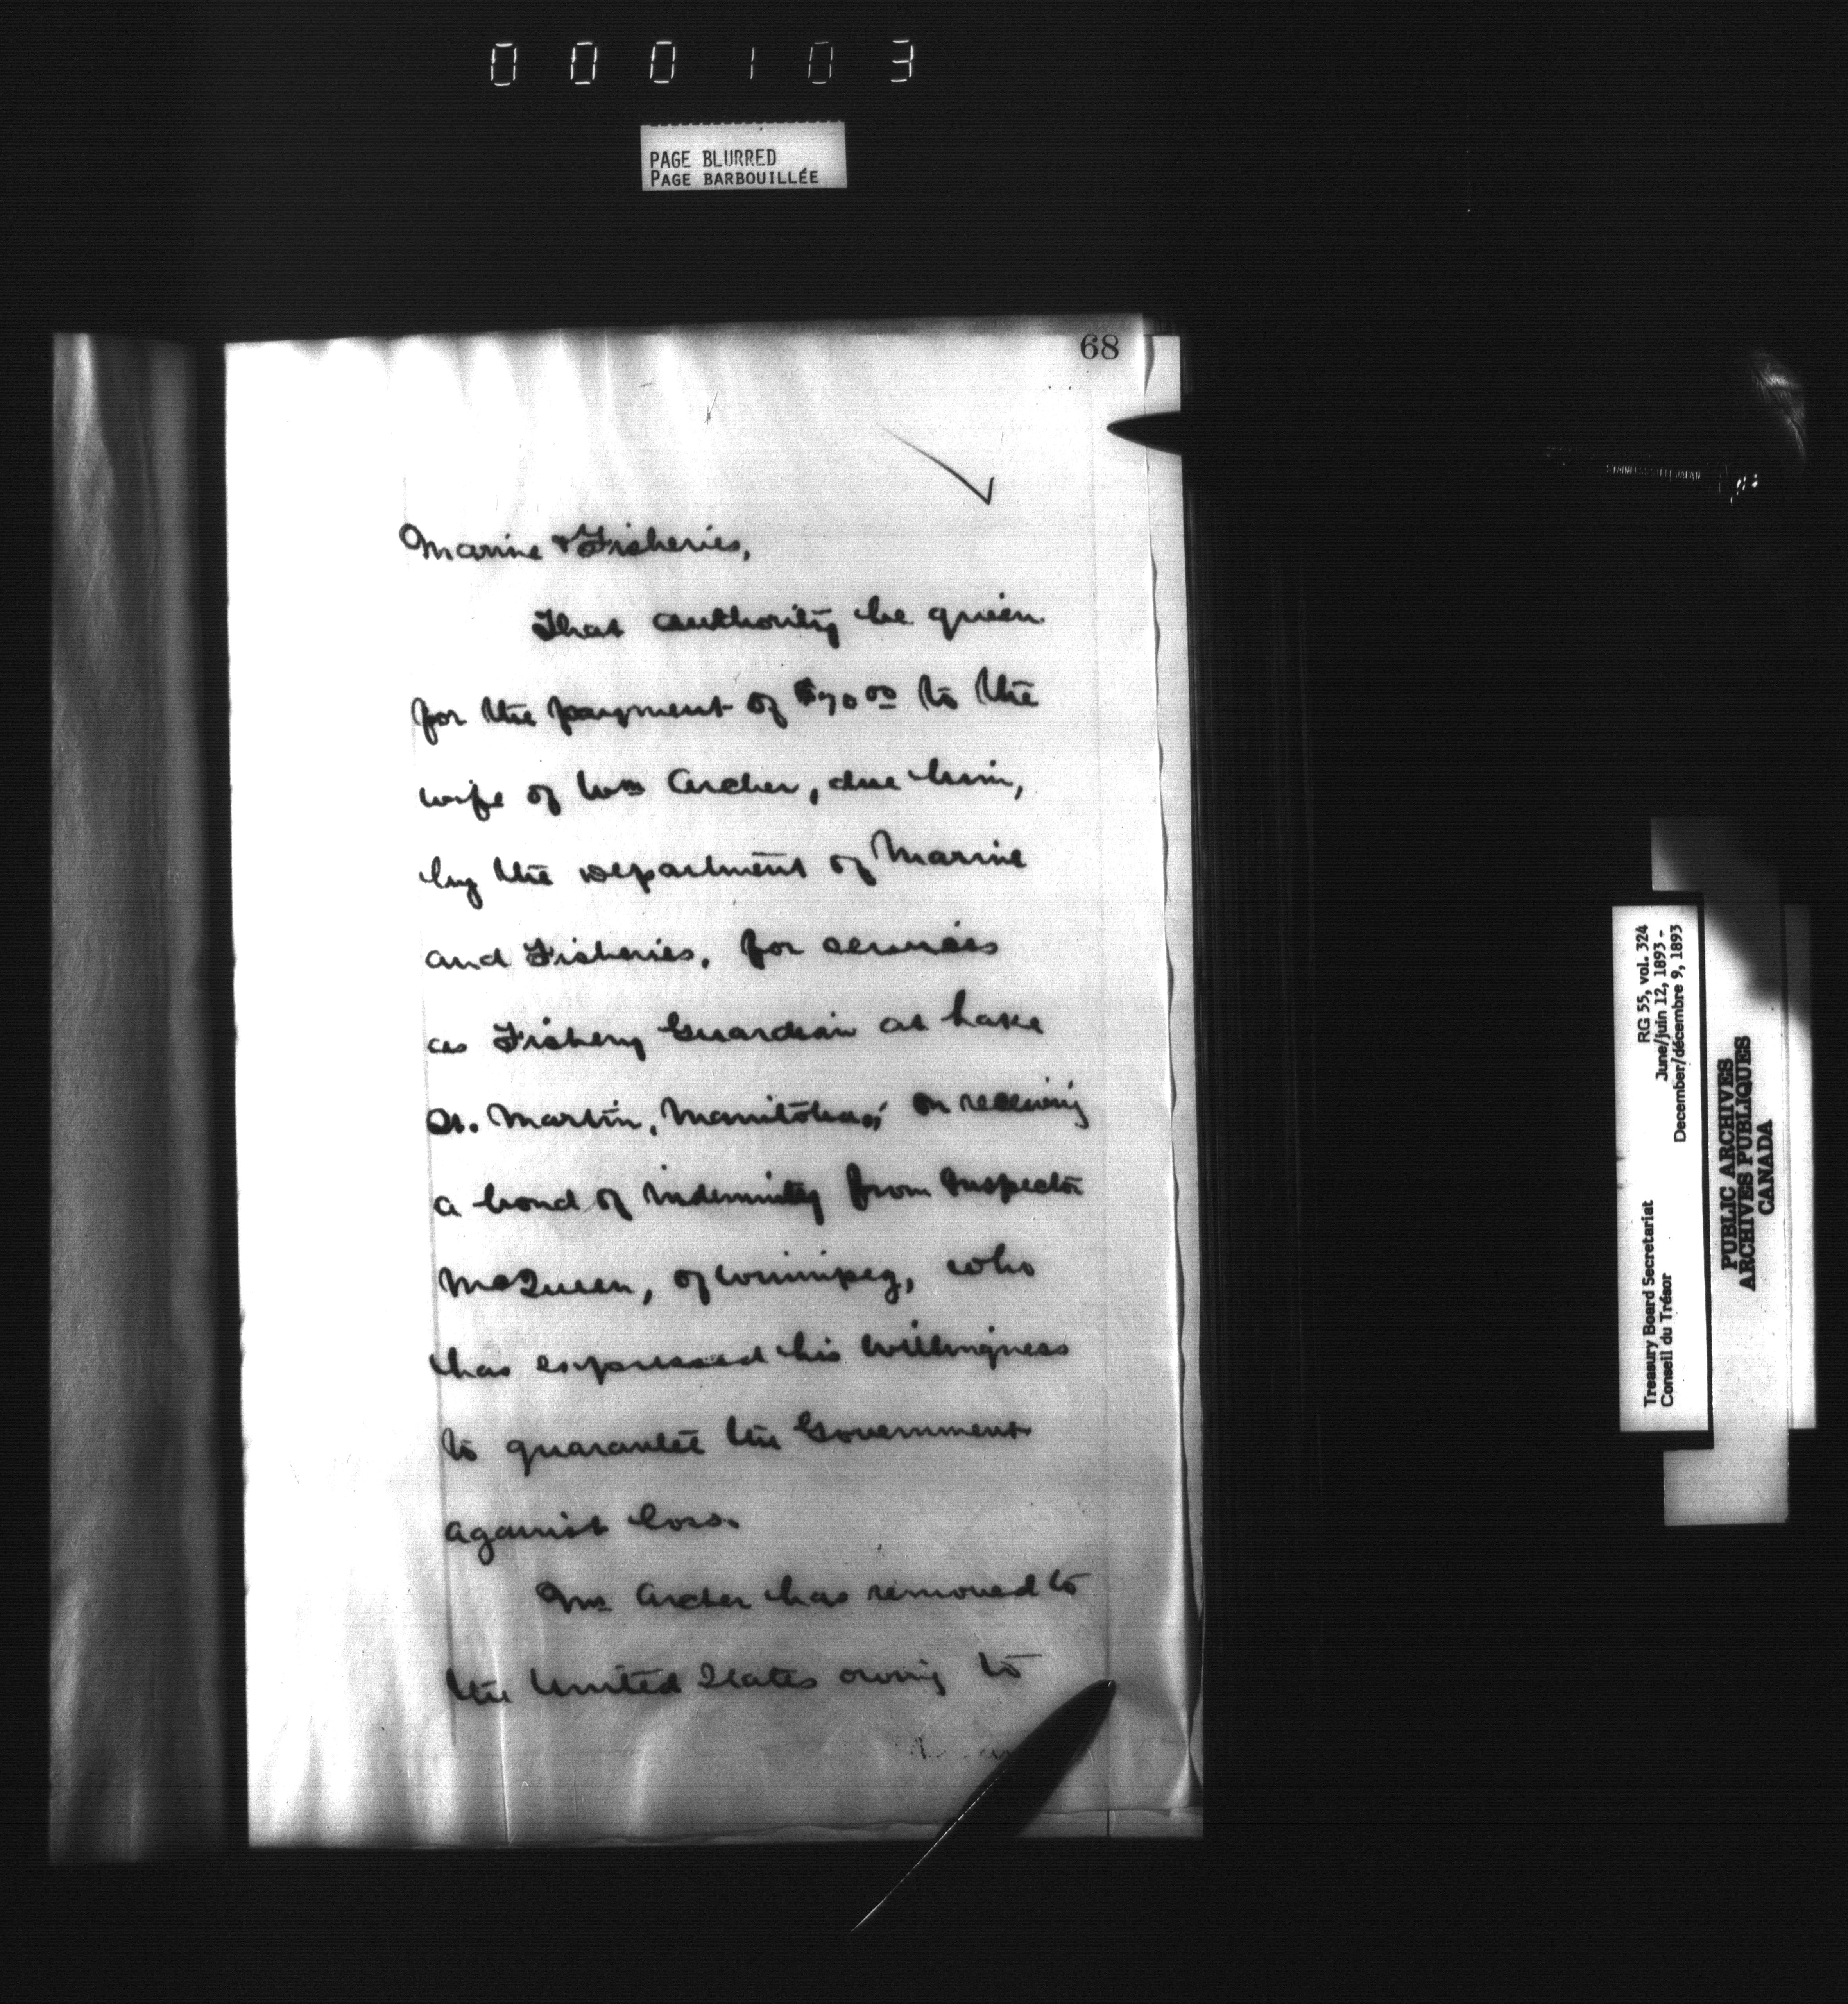 000103
PAGE BLURRED
PAGE BARBOUILLÉE
68
Marine & Fisheries,
That authority be given
for the payment of $70 00 to the
wife of Wm Archer, due him,
by the Department of Marine
and Fisheries, for services
as Fishery Guardian at Lake
St. Martin, Manitoba; on receiving
a bond of indemnity from Inspector
McQueen, of Winnipeg, who
has expressed his willingness
to guarantee the Government
against loss.
Mr Archer has removed to
the United States owing to
RG 55, vol. 324
June/juin 12, 1893 -
December/décembre 9, 1893
Treasury Board Secretariat
Conseil du Trésor
PUBLIC ARCHIVES
ARCHIVES PUBLIQUES
CANADA